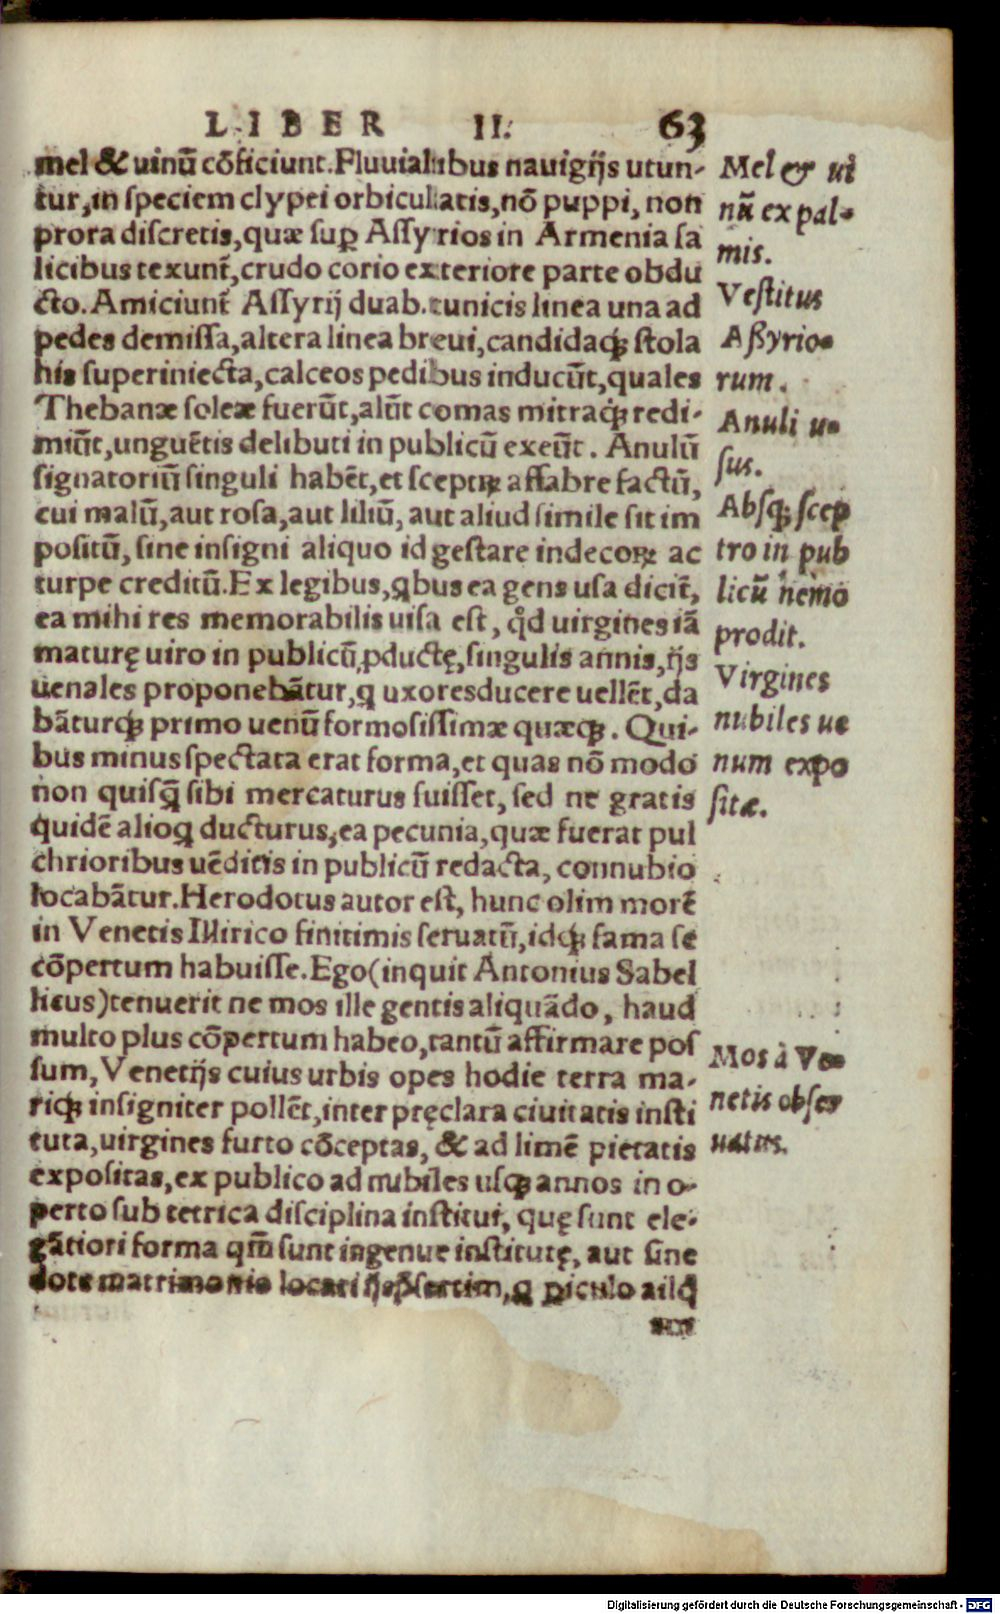 LIBER II. 63
mel & uinū cōficiunt. Fluuialibus nauigijs utun-
tur, in speciem clypei orbiculatis, nō puppi, non
prora discretis, quæ suꝑ Assyrios in Armenia sa
licibus texunt̄, crudo corio exteriore parte obdu
cto. Amiciunt̄ Assyrij duab. tunicis linea una ad
pedes demissa, altera linea breui, candidaq́ꝫ stola
his superiniecta, calceos pedibus inducūt, quales
Thebanæ soleæ fuerūt, alūt comas mitraq́ꝫ redi-
miūt, unguētis delibuti in publicū exeūt. Anulū
signatoriū singuli habēt, et sceptꝝ affabre factū,
cui malū, aut rosa, aut liliū, aut aliud simile sit im
positū, sine insigni aliquo id gestare indecoꝝ ac
turpe creditū. Ex legibus, qbus ea gens usa dicit̄,
ea mihi res memorabilis uisa est, qd uirgines iā
maturę uiro in publicū ꝓductę, singulis annis, ijs
uenales proponebātur, q uxores ducere uellēt, da
bāturq́ꝫ primo uenū formosissimæ quæqꝫ. Qui-
bus minus spectata erat forma, et quas nō modo
non quisq̄ sibi mercaturus fuisset, sed ne gratis
quidē alioq ducturus, ea pecunia, quæ fuerat pul
chrioribus uēditis in publicū redacta, connubio
locabātur. Herodotus autor est, hunc olim morē
in Venetis Illirico finitimis seruatū, idq́ꝫ fama se
cōpertum habuisse. Ego (inquit Antonius Sabel
licus) tenuerit ne mos ille gentis aliquādo, haud
multo plus cōpertum habeo, tantū affirmare pos
sum, Venetijs cuius urbis opes hodie terra ma-
riq́ꝫ insigniter pollēt, inter pręclara ciuitatis insti
tuta, uirgines furto cōceptas, & ad limē pietatis
expositas, ex publico ad nubiles usqꝫ annos in o-
perto sub tetrica disciplina institui, quę sunt ele-
gātiori forma qm̄ sunt ingenue institutę, aut sine
dote matrimonio locari
Mel & ui
nū ex pal-
mis.
Vestitus
Aßyrio-
rum.
Anuli u-
sus.
Absqꝫ scep
tro in pub
licū nemo
prodit.
Virgines
nubiles ue
num expo
sitæ.
Mos à Ve-
netis obser
uatus.
Digitalisierung gefördert durch die Deutsche Forschungsgemeinschaft - DFG